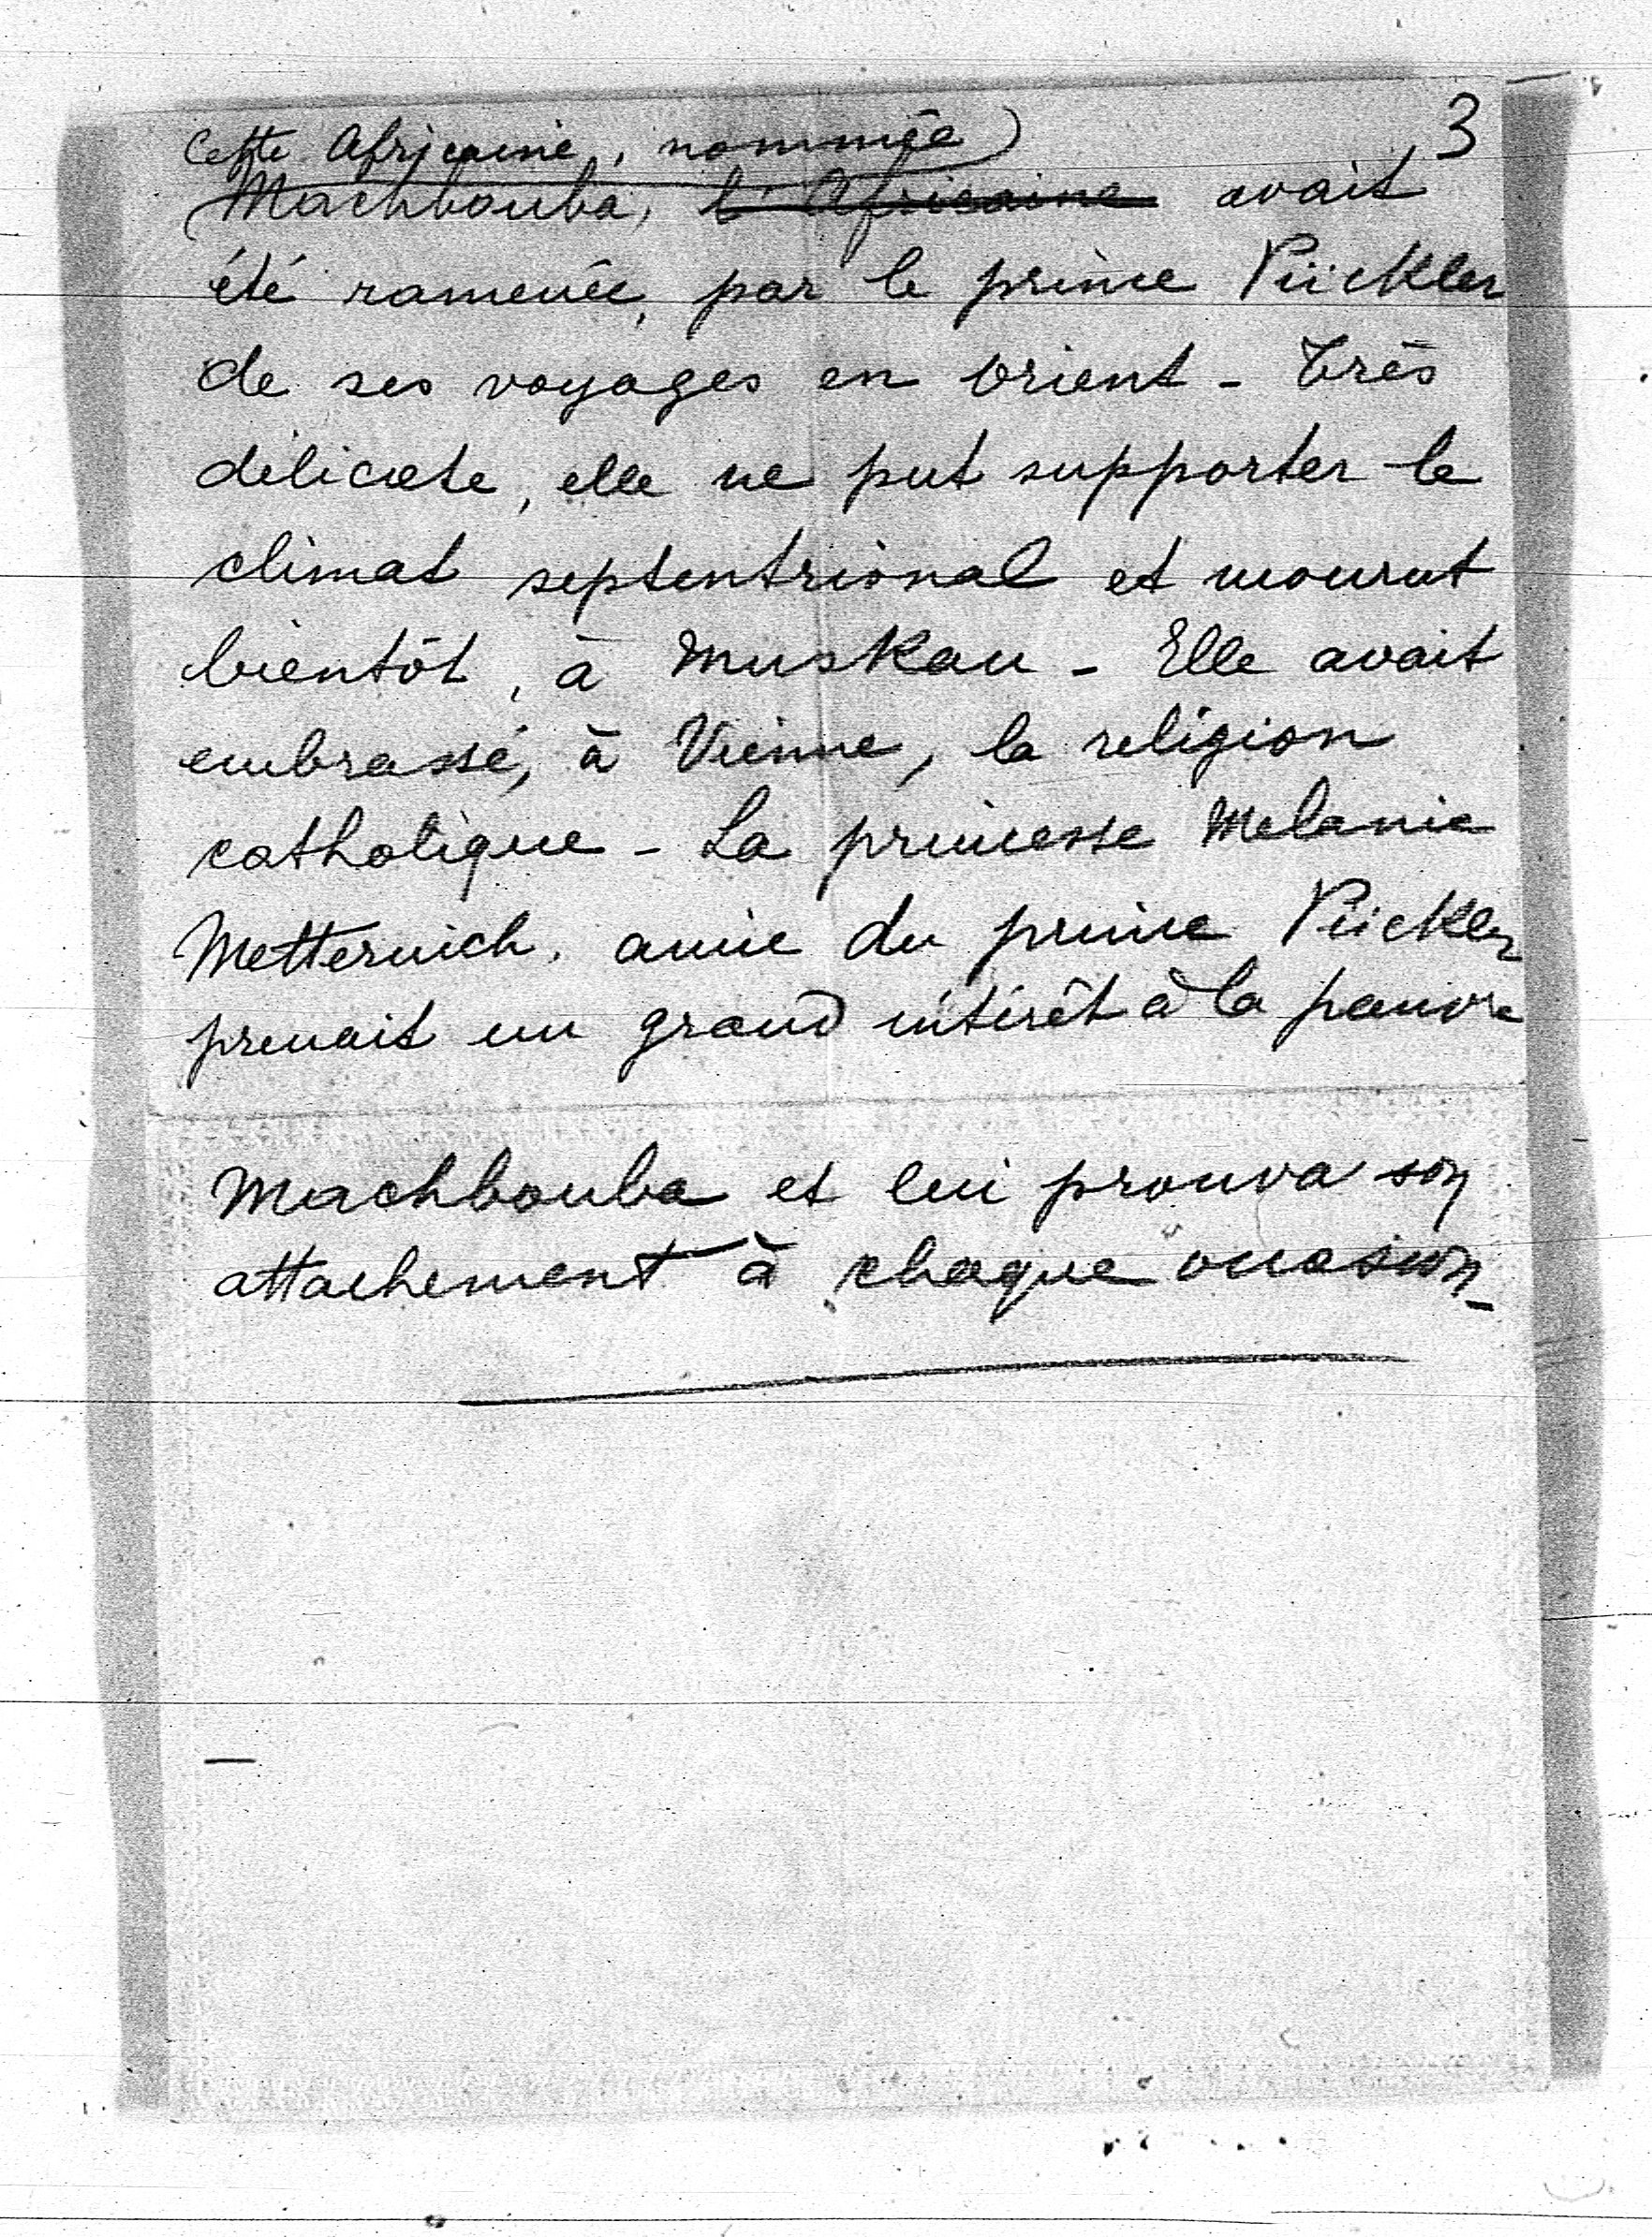 3
Cette Africaine, nommée
Machbouba, l'Africaine avait
été ramenée, par le prince Pückler
de ses voyages en Orient - Très
délicate, elle ne put supporter le
climat septentrional et mourut
bientôt, à Muskau - Elle avait
embrassé, à Vienne, la religion
catholique - La princesse Melanie
Metternich, amie du prince Pückler
prenait un grand intérêt à la pauvre
Machbouba et lui prouva son
attachement à chaque occasion_